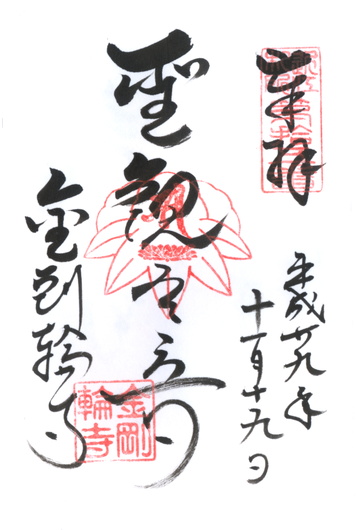 奉拝
平成廿九年
十一月十九日
聖観世音
金剛輪寺
金剛
輪寺